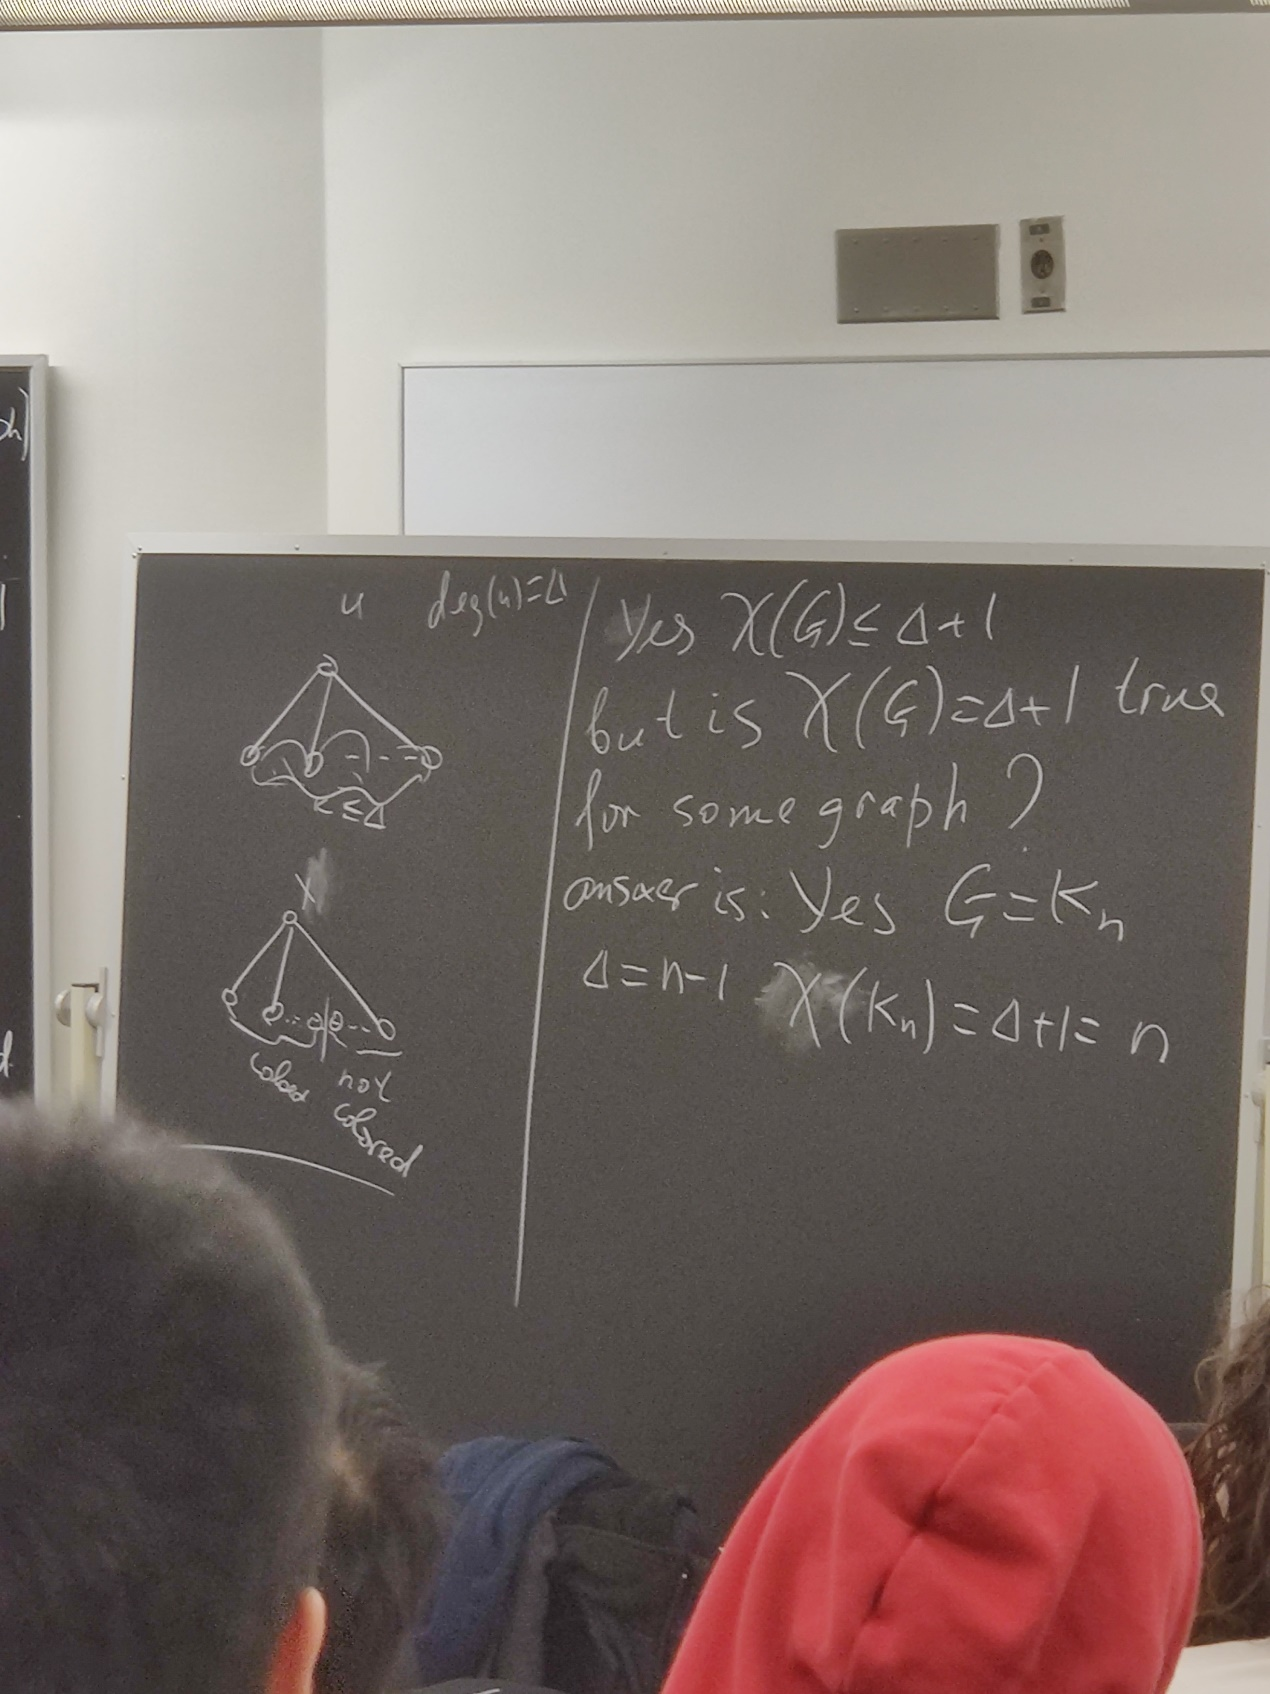 u deg(u)=Δ
≤Δ
x
colored not
colored
Yes χ(G)≤ Δ+1
but is χ(G)=Δ+1 true
for some graph?
answer is: Yes G=Kn
Δ=n-1 χ(Kn)=Δ+1= n